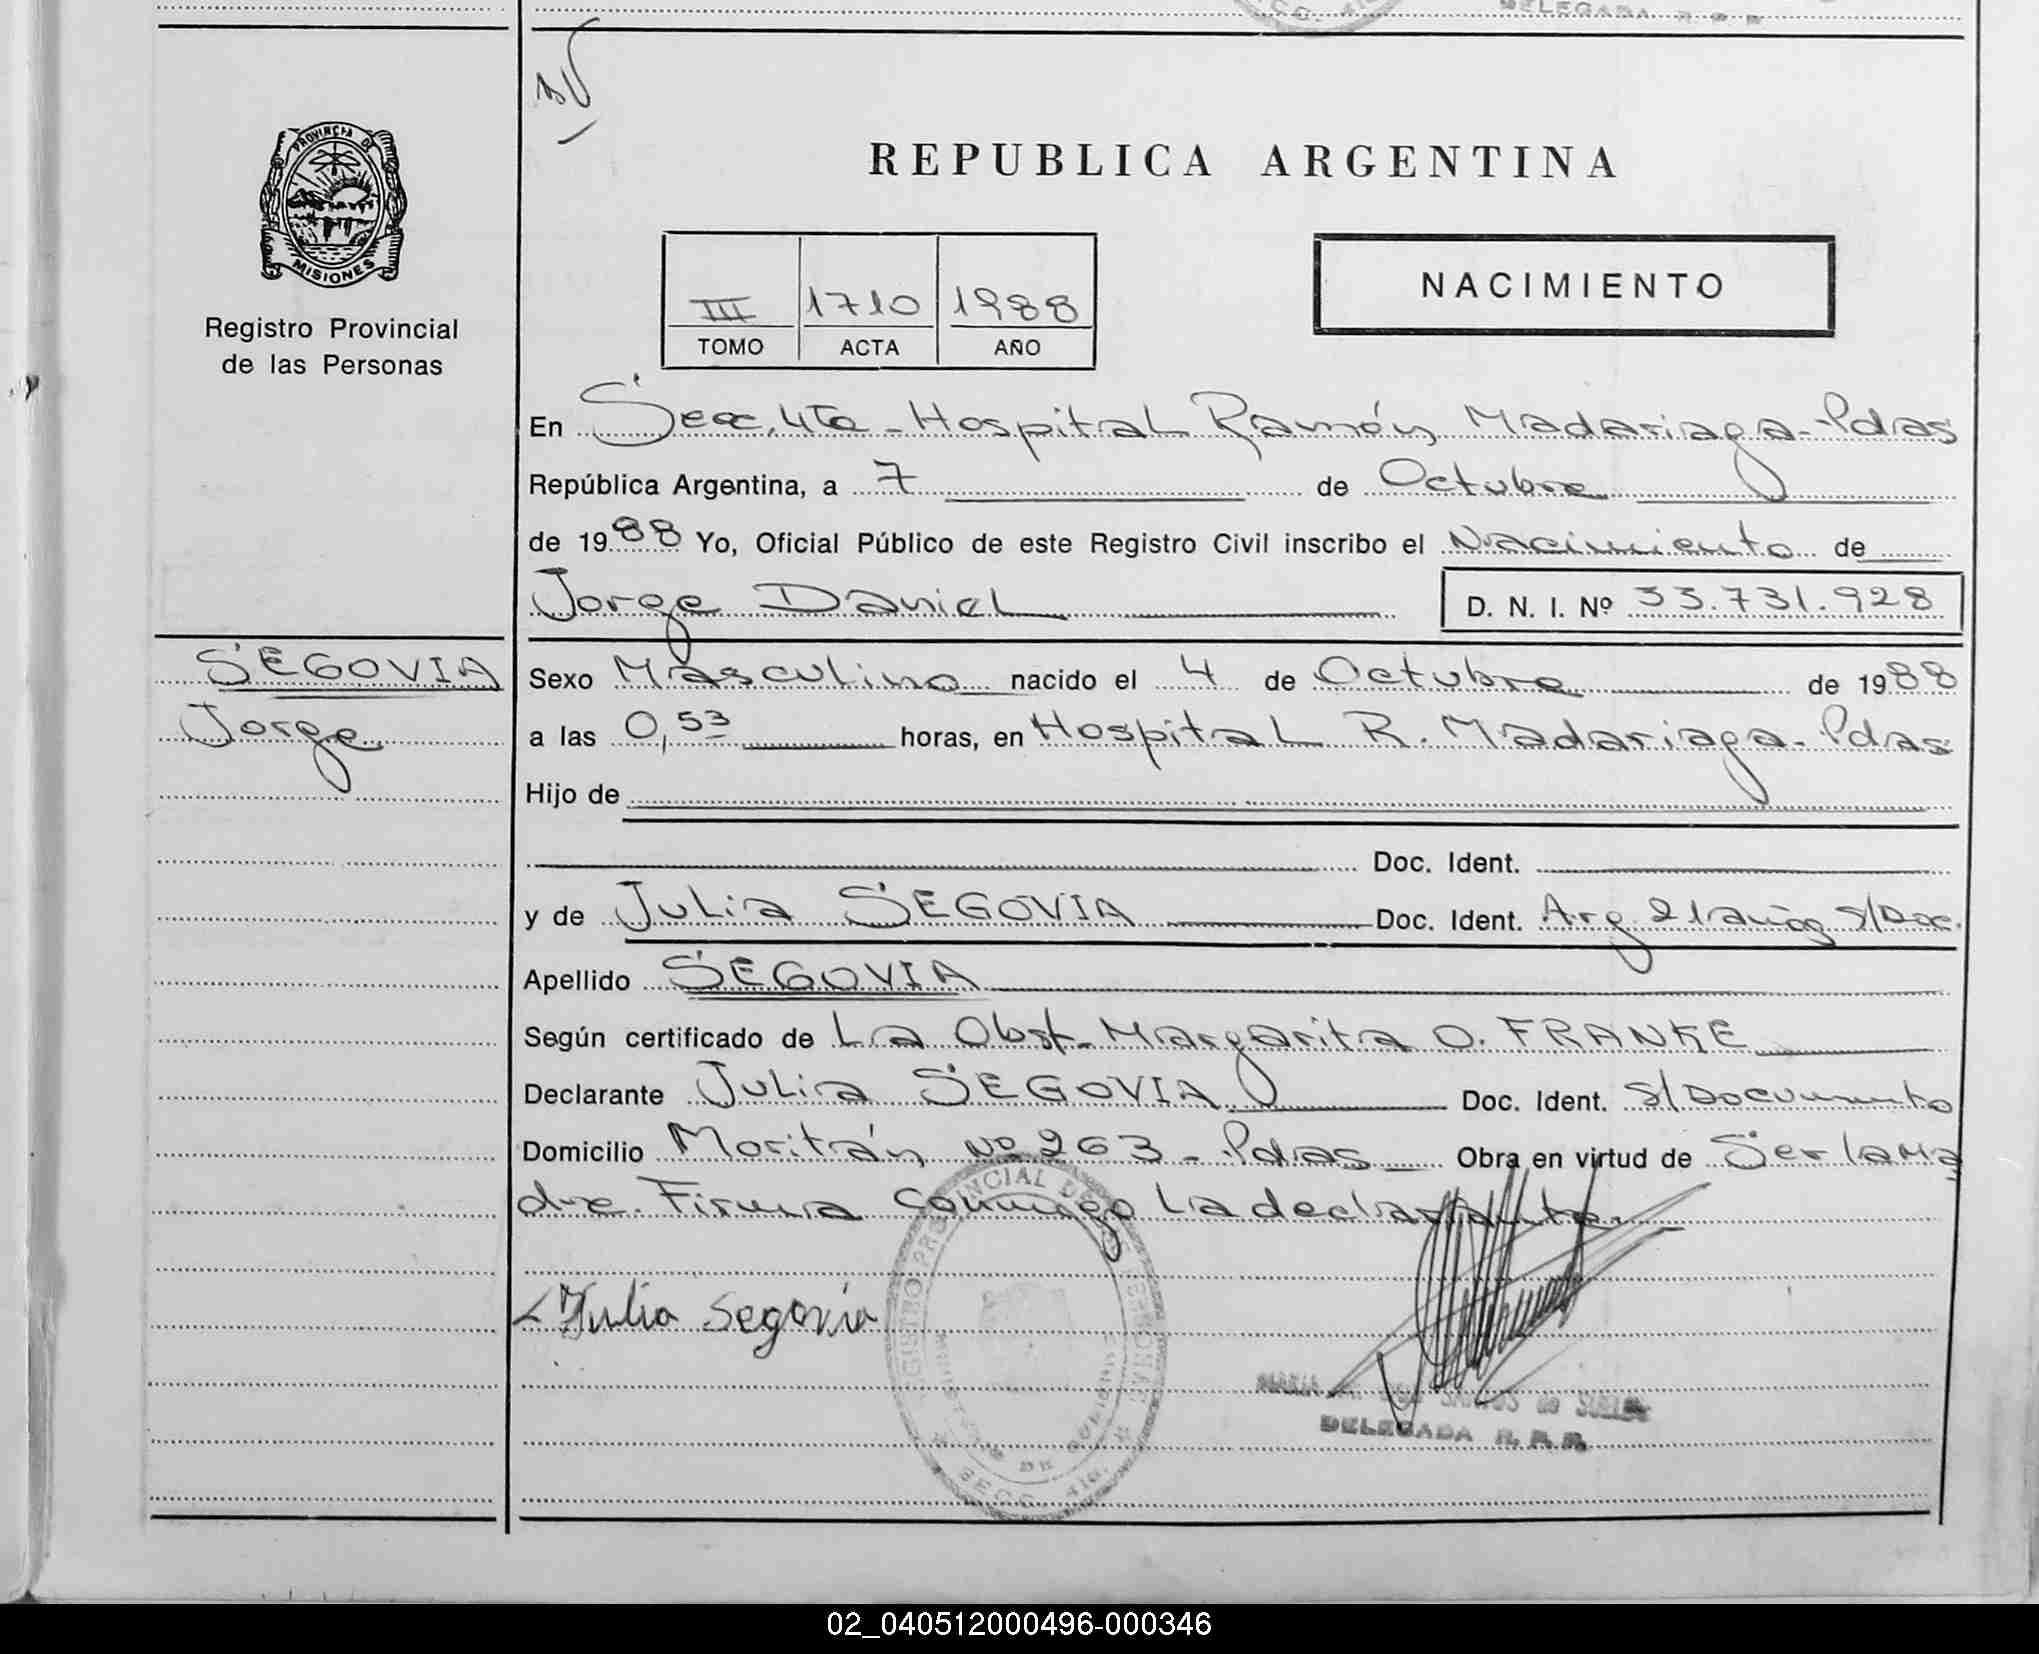 DELEGADA R. P. P.
PROVINCIA DE
MISIONES
Registro Provincial
de las Personas
REPUBLICA ARGENTINA
NACIMIENTO
III 1710 1988
TOMO ACTA AÑO
En Secc. 4ta - Hospital Ramón Madariaga - Pdas
República Argentina, a 7 de Octubre
de 1988 Yo, Oficial Público de este Registro Civil inscribo el Nacimiento de
Jorge Daniel D. N. I. Nº 33.731.928
SEGOVIA
Jorge
Sexo Masculino nacido el 4 de Octubre de 1988
a las 0,53 horas, en Hospital R. Madariaga - Pdas
Hijo de
Doc. Ident.
y de Julia SEGOVIA Doc. Ident. Arg. 21 años s/Doc.
Apellido SEGOVIA
Según certificado de La Obst. Margarita O. FRANKE
Declarante Julia SEGOVIA Doc. Ident. S/Documento
Domicilio Moritán Nº 263 - Pdas Obra en virtud de Ser la ma
dre. Firma conmigo la declarante.
Julia Segovia
REGISTRO PROVINCIAL DE LAS PERSONAS
MINISTERIO DE GOBIERNO
SECC. 4ta.
MARIA SANTOS de
DELEGADA R. P. P.
02_040512000496-000346